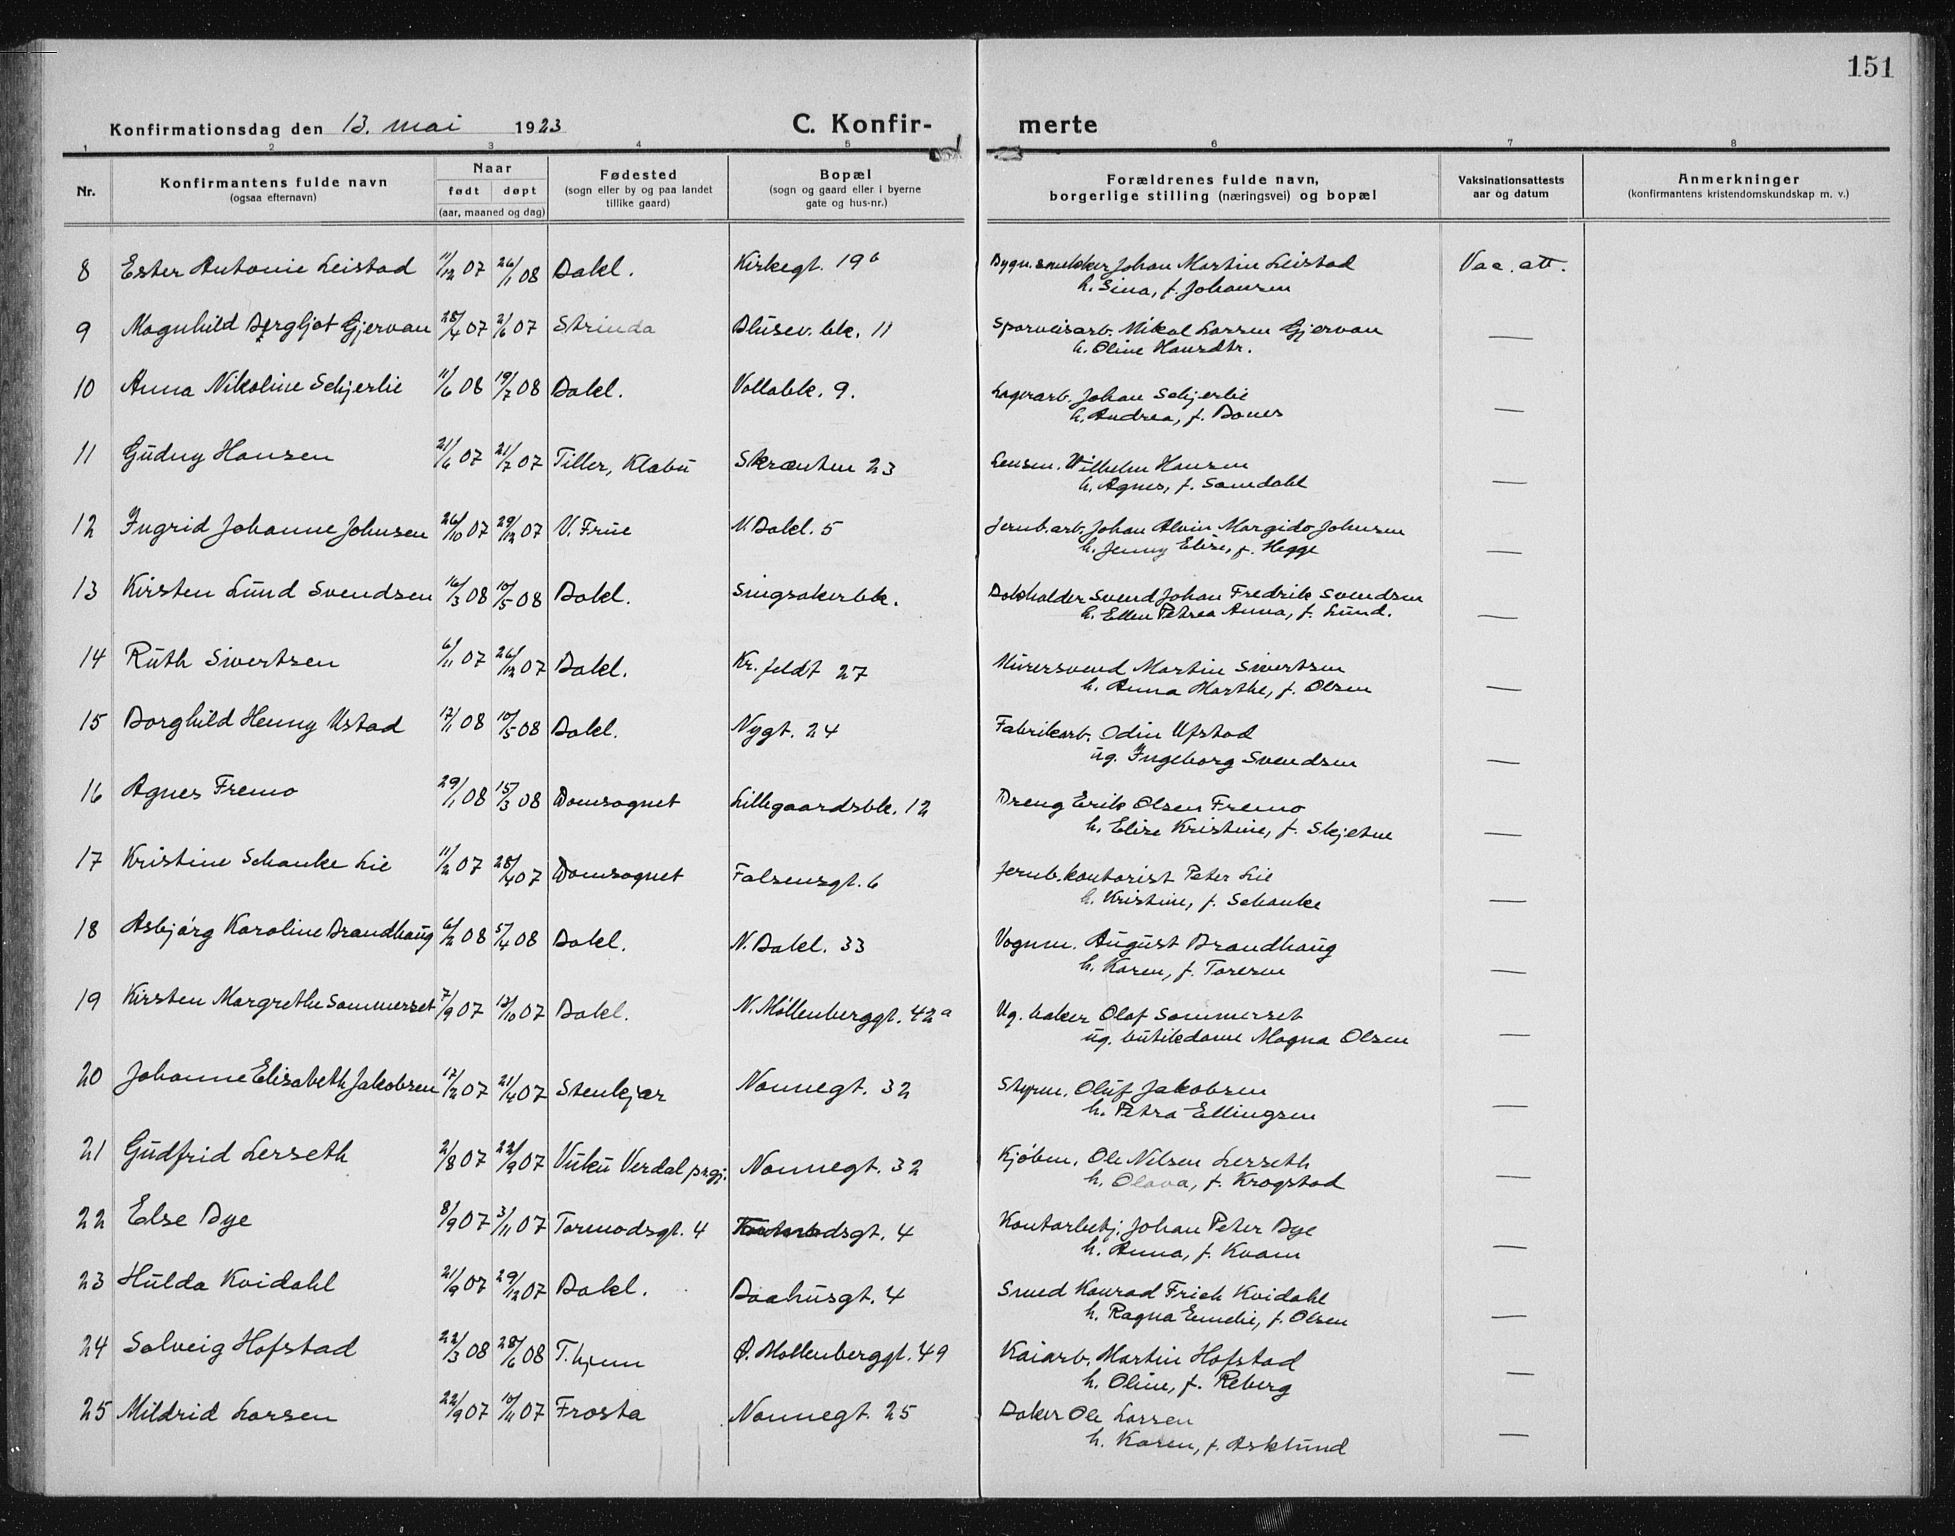 151
Konfirmationsdag den 13. mai 1923 C. Konfir- merte
1 2 3 4 5 6 7 8
Nr. Konfirmantens fulde navn (ogsaa efternavn) Naar født døpt (aar, maaned og dag) Fødested (sogn eller by og paa landet tillike gaard) Bopæl (sogn og gaard eller i byerne gate og hus-nr.) Forældrenes fulde navn, borgerlige stilling (næringsvei) og bopæl Vaksinationsattests aar og datum Anmerkninger (konfirmantens kristendomskundskap m. v.)
8 Ester Antonie Leistad 11/12 07 26/1 08 Bakl. Kirkegt. 19b Bygn.snekker Johan Martin Leistad Vac. att.
h. Sina, f. Johansen
9 Magnhild Bergljot Gjervan 28/4 07 2/6 07 Strinda Blusev. bk. 11 Sporveisarb. Nikal Larsen Gjervan —
h. Oline Hansdtr.
10 Anna Nikoline Schjerlie 11/6 08 19/7 08 Bakl. Vollabk. 9. Lagerarb. Johan Schjerlie —
h. Andrea, f. Boner
11 Gudny Hansen 21/6 07 21/7 07 Tiller, Klæbu Skrænten 23 Lensm. Wilhelm Hansen —
h. Agnes, f. Samdahl
12 Ingrid Johanne Johnsen 26/10 07 29/12 07 V. Frue N. Bakl. 5 Jernb.arb. Johan Alvin Margido Johnsen —
h. Jenny Elise, f. Hegge
13 Kirsten Lund Svendsen 16/3 08 10/5 08 Bakl. Singsakerbk. Bokholder Svend Johan Fredrik Svendsen —
h. Ellen Petrea Anna, f. Lund.
14 Ruth Sivertsen 6/11 07 26/12 07 Bakl. Kr. feldt 27 Murersvend Martin Sivertsen —
h. Anna Marthe, f. Olsen
15 Borghild Henny Ustad 17/1 08 10/5 08 Bakl. Nygt. 24 Fabrikarb. Odin Ufstad —
ug. Ingeborg Svendsen
16 Agnes Fremo 29/1 08 15/3 08 Domsognet Lillegaardsbk. 12 Dreng Erik Olsen Fremo —
h. Elise Kristine, f. Skjetne
17 Kristine Schanke Lie 11/2 07 28/4 07 Domsognet Falsensgt. 6 Jernb.kontorist Peter Lie —
h. Kristine, f. Schanke
18 Asbjørg Karoline Brandhaug 6/2 08 5/4 08 Bakl. N. Bakl. 33 Vognm. August Brandhaug —
h. Karen, f. Toresen
19 Kirsten Margrethe Sommerset 7/9 07 13/10 07 Bakl. N. Møllenberggt. 42a Ug. baker Olaf Sommerset —
ug. butikdame Magna Olsen
20 Johanne Elisabeth Jakobsen 17/2 07 21/4 07 Stenkjær Nonnegt. 32 Styrm. Oluf Jakobsen —
h. Petra Ellingsen
21 Gudfrid Lerseth 2/8 07 22/9 07 Vuku Verdal prgj. Nonnegt. 32 Kjøbm. Ole Nilsen Lerseth —
h. Olava, f. Krogstad
22 Else Bye 8/9 07 3/11 07 Tormodsgt. 4 Tormodsgt. 4 Kontorbetj. Johan Peter Bye —
h. Anna, f. Kvam
23 Hulda Kvidahl 21/9 07 29/12 07 Bakl. Baahusgt. 4 Smed Konrad Frich Kvidahl —
h. Ragna Emelie, f. Olsen
24 Solveig Hofstad 22/3 08 28/6 08 T.hjem Ø. Møllenberggt. 49 Kaiarb. Martin Hofstad —
h. Oline, f. Reberg
25 Mildrid Larsen 22/9 07 10/11 07 Frosta Nonnegt. 25 Baker Ole Larsen —
h. Karen, f. Asklund